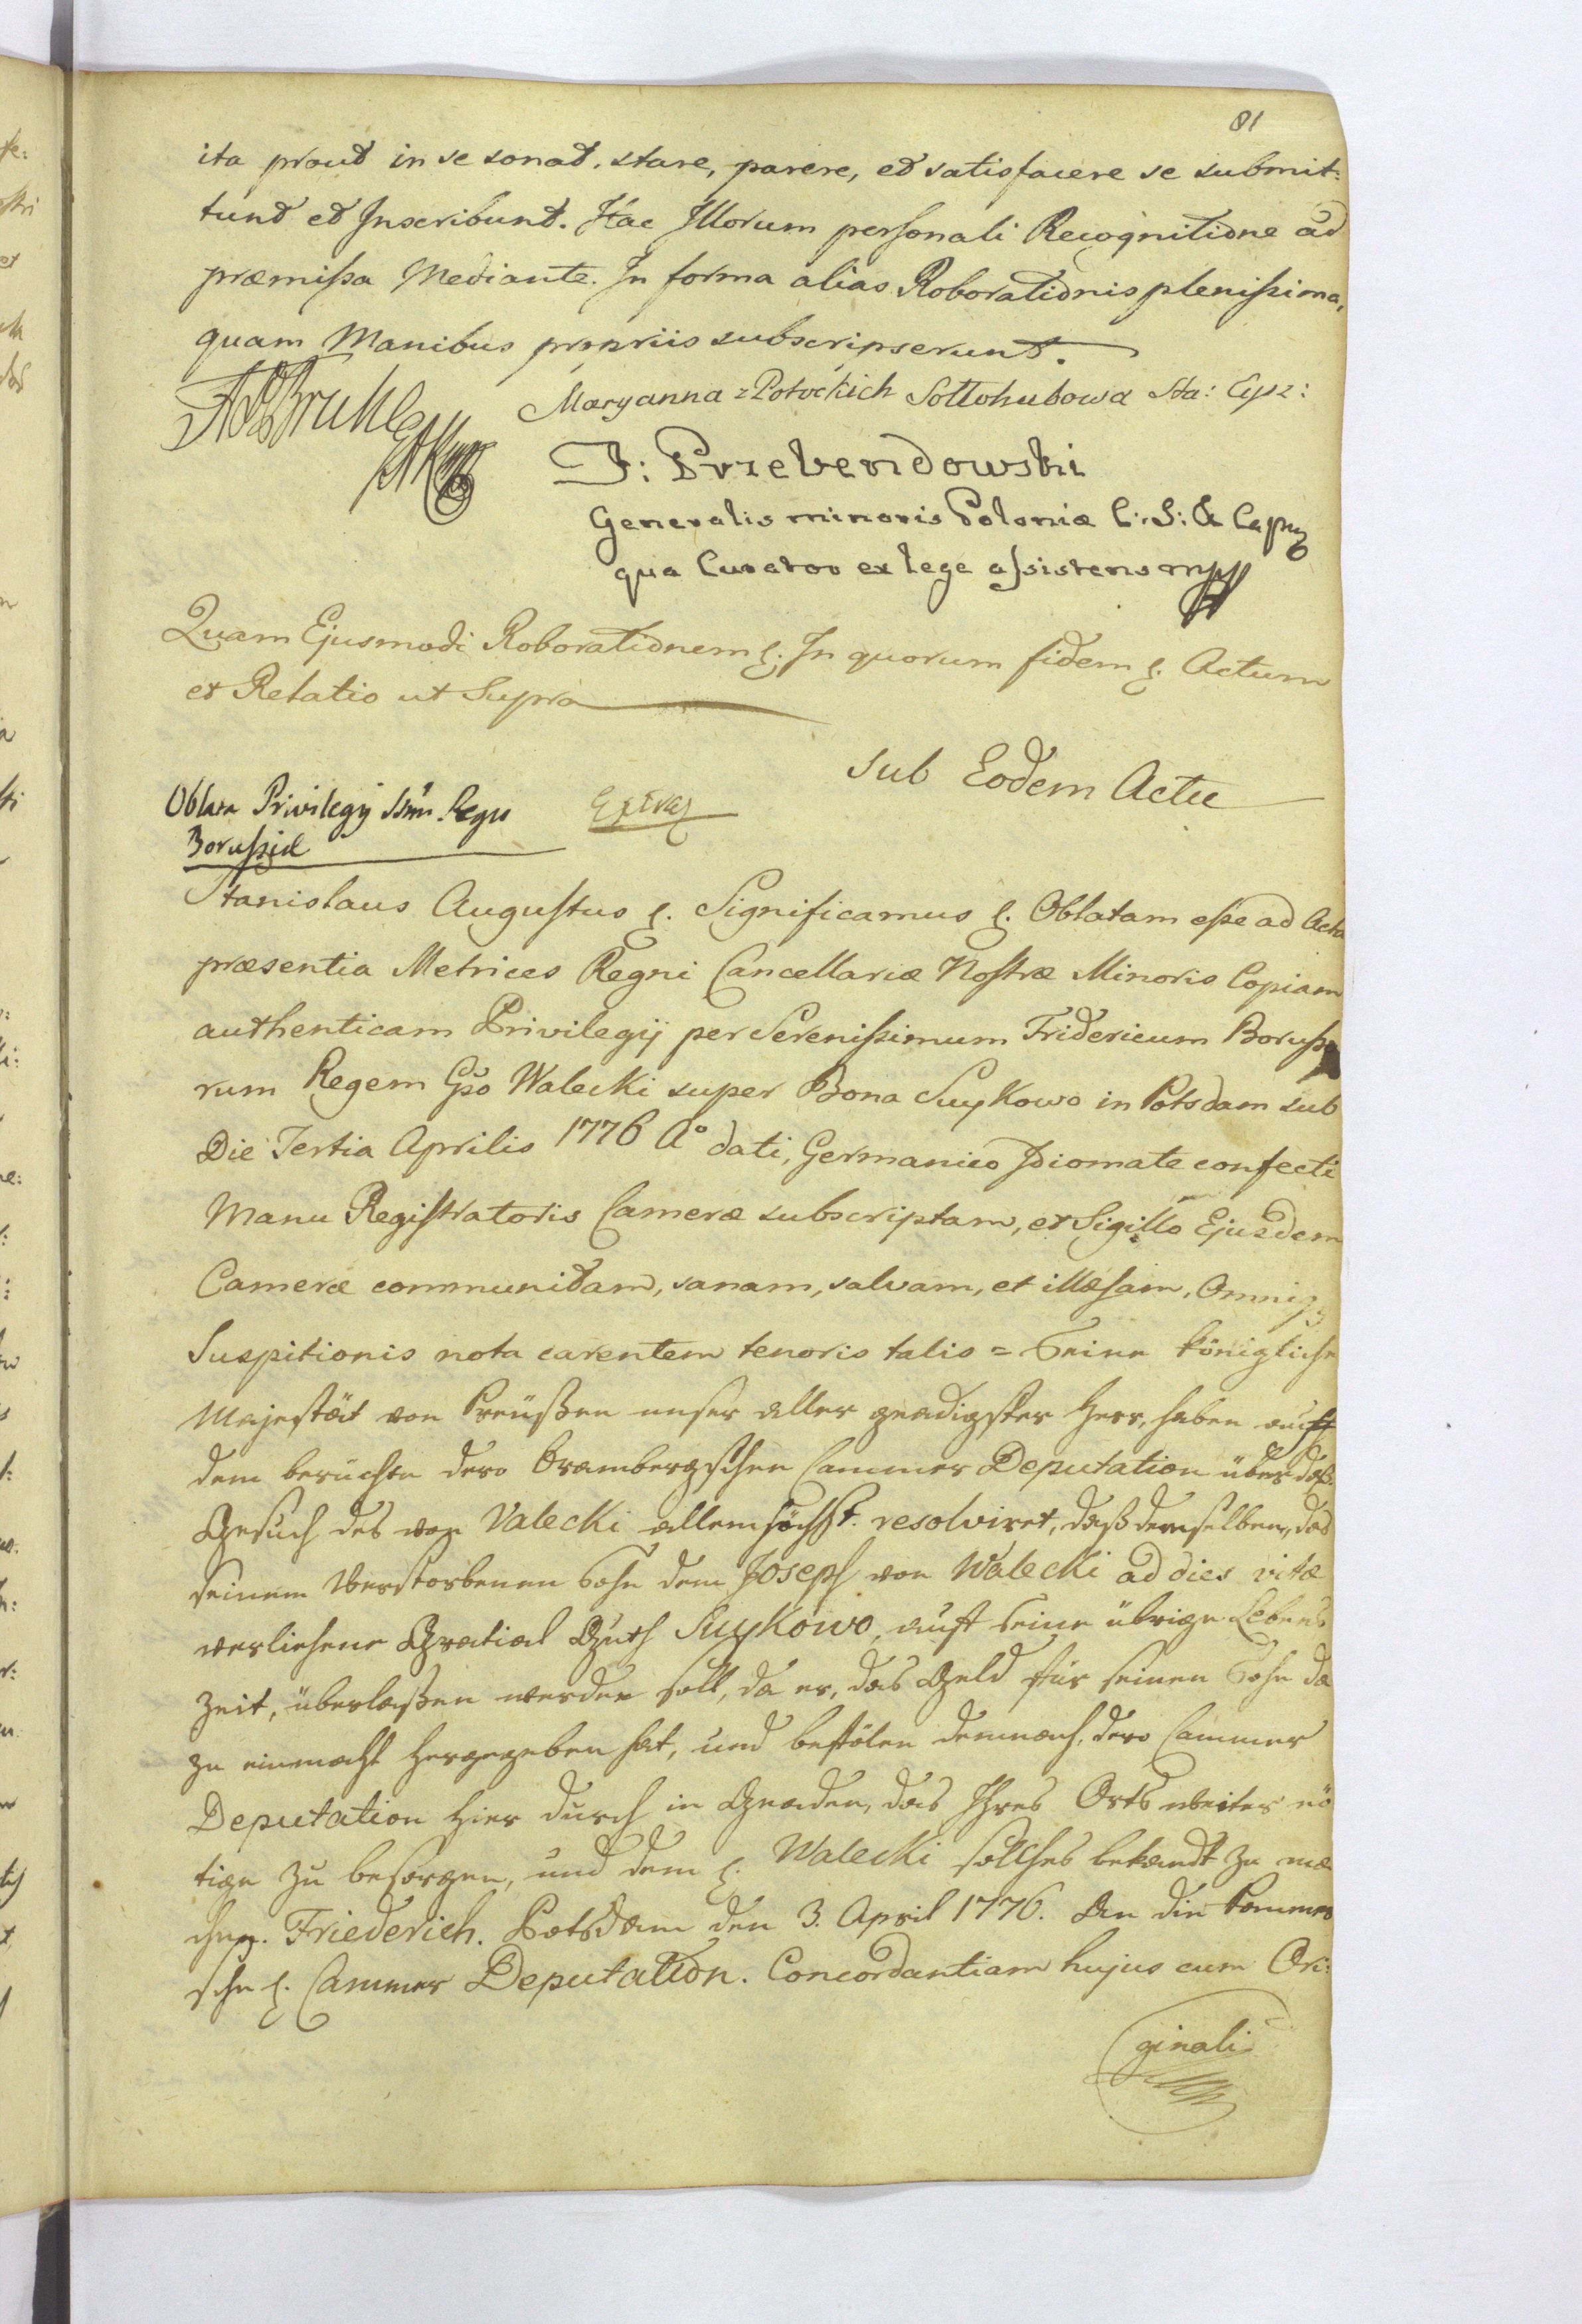 81
ita prout in se sonat, stare, parere, et satisfacere se submit:
tunt et Inscribunt. Hac Illorum personali Recognitione ad
præmissa Mediante. In forma alias Roborationis plenissima,
quam Manibus propriis subscripserunt.
ABruhl
Maryanna z Potockich Sollohubowa Sta: Eysz:
J: Przebendowski
Generalis minoris Poloniæ C: S: &
qua Curator ex lege assistens mpp
Quam Ejusmodi Roborationem &. In quorum fidem &. Actum
et Relatio ut Supra
Sub Eodem Actu
Oblata Privilegij Ssmi Regis
Borussiæ
Stanislaus Augustus &. Significamus &. Oblatam esse ad Acta
præsentia Metrices Regni Cancellariæ Nostræ Minoris Copiam
authenticam Privilegij per Serenissimum Fridericum Borusso
rum Regem Gso Walecki super Bona Suykowo in Potsdam sub
Die Tertia Aprilis 1776 Aº dati, Germanico Idiomate confecti
Manu Registratoris Cameræ subscriptam, et Sigillo Ejusdem
Cameræ communitam, sanam, salvam, et illæsam, Omniq3
Suspitionis nota carentem tenoris talis = Seine Königliche
Majestät von Preüßen unser aller gnadigster Herr, haben auff
dem berüchte dero Brambergschen Cammer Deputation über daß
Gesuch des von Valecki allerhöchst. resolviret, daß demselben, das
seinem Verstorbenen Sohn dem Joseph von Walecki ad dies vitæ
verliehene Gratial Guth Suykowo, auff seine übrige Lebens
zeit, überlaßen werden soll, da er, das Geld für seinen Sohn da
zu einmahl hergegeben hat, und befölen demnach, dero Cammer
Deputation hier durch in Gnaden, das Ihres Orts weiter nö
tige zu besorgen, und dem &. Walecki solches bekandt zu ma
chen. Friederich. Potsdam den 3. April 1776. An die Pommer
sche &. Cammer Deputation. Concordantiam hujus cum Ori:
ginali